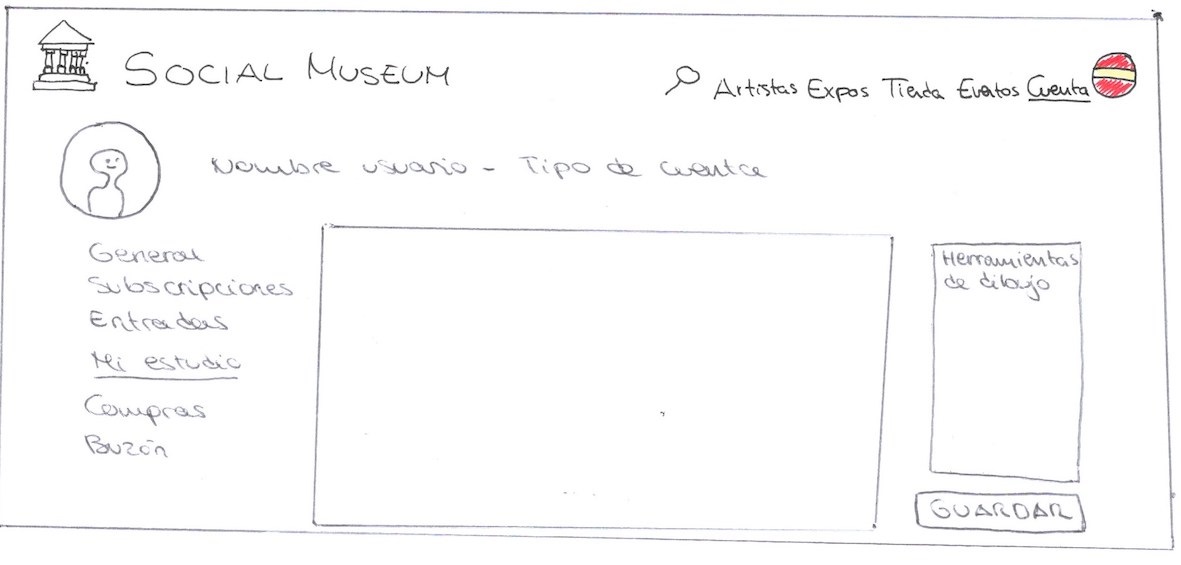 SOCIAL MUSEUM
Artistas Expos Tienda Eventos Cuenta
Nombre usuario - Tipo de cuenta
General
Subscripciones
Entradas
Mi estudio
Compras
Buzón
Herramientas
de dibujo
GUARDAR